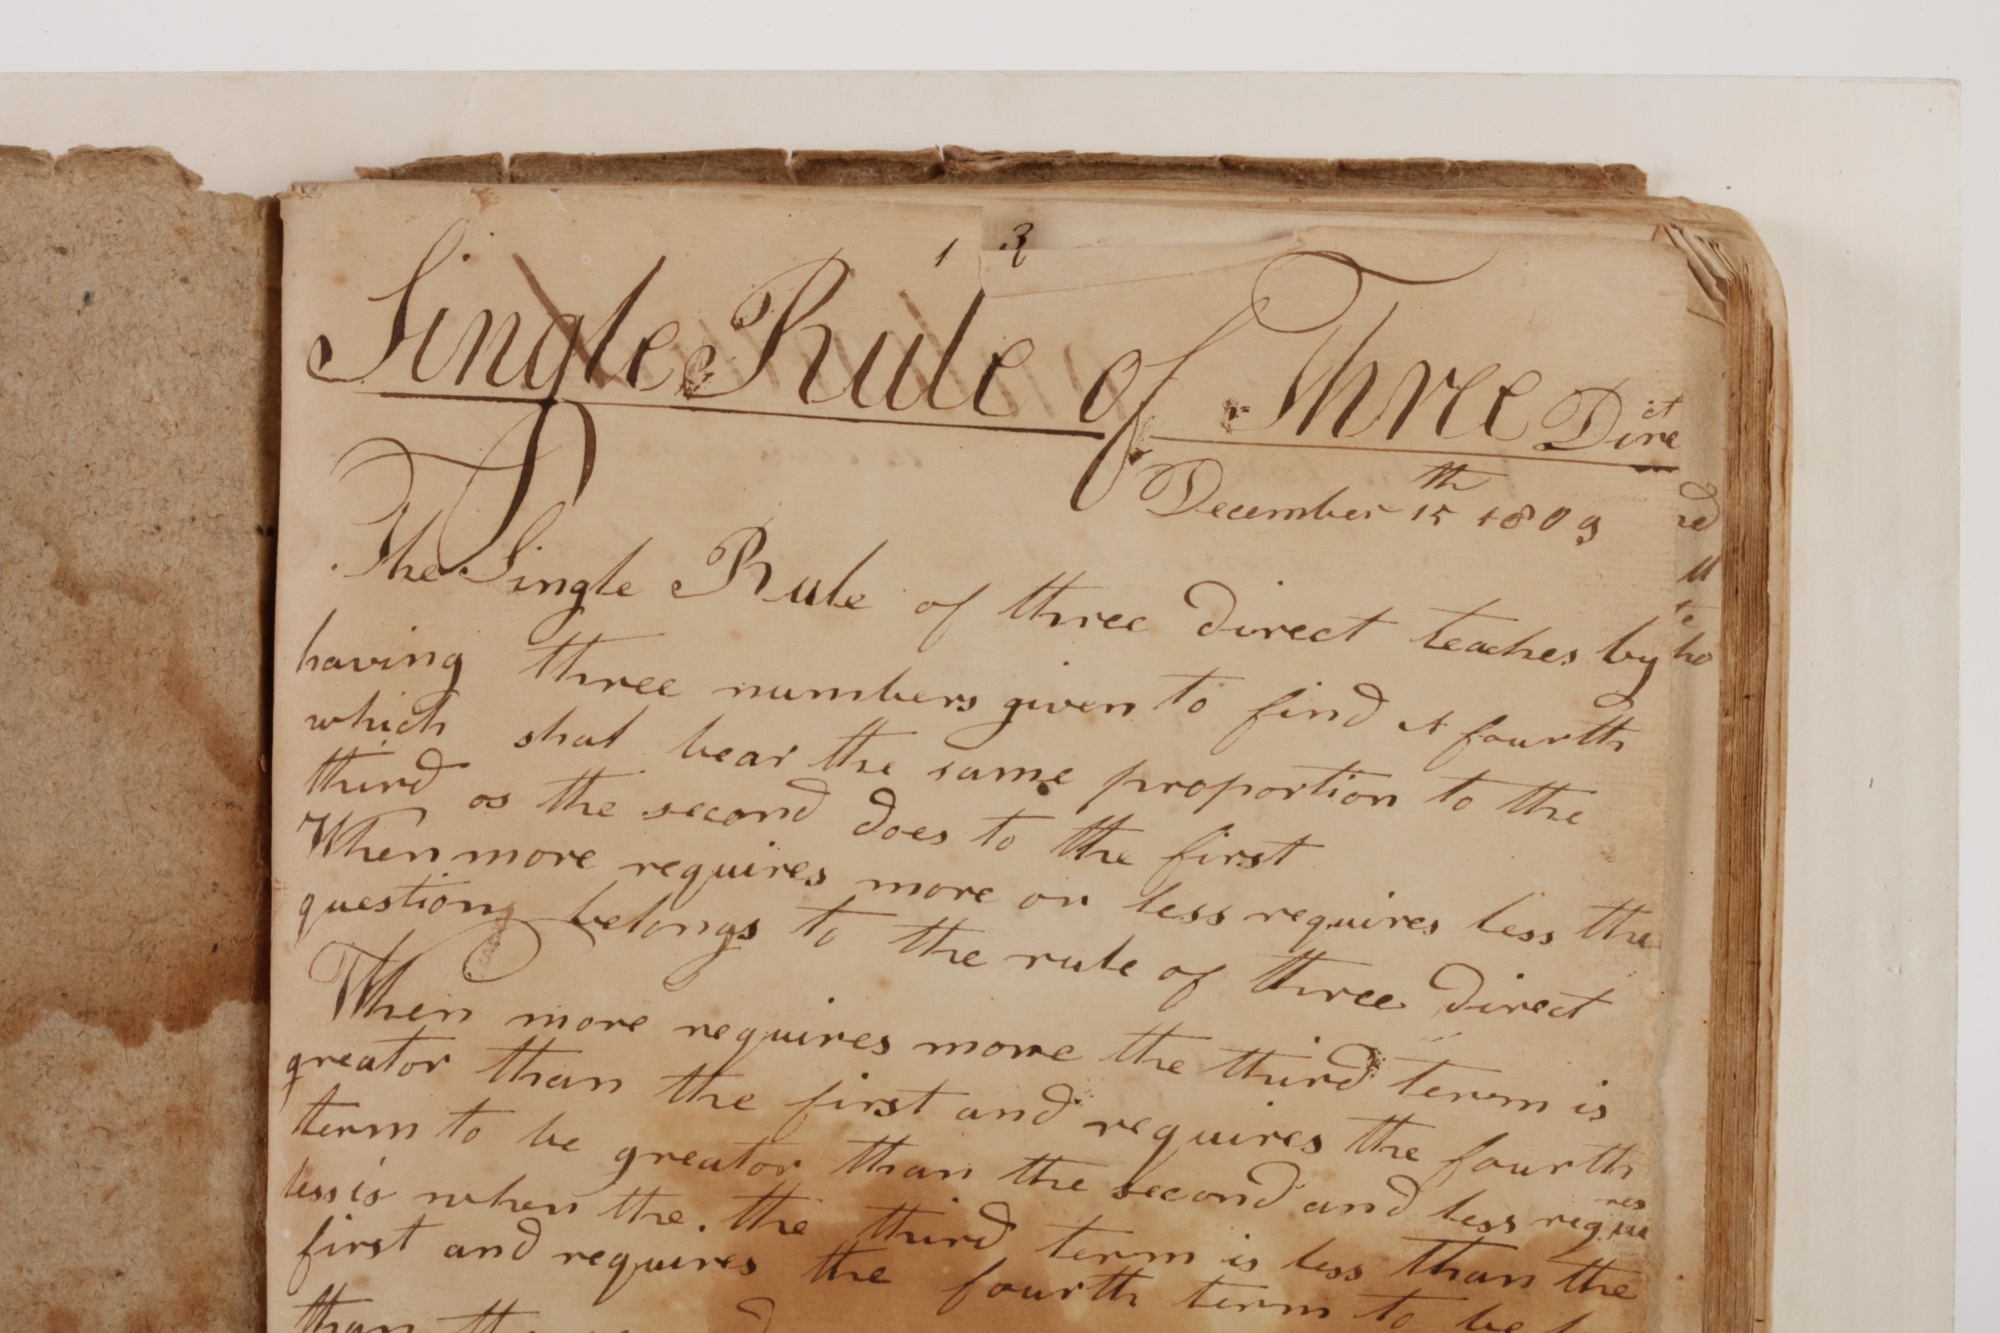 1 3
Single Rule of Three Direct
December 15th 1809
The Single Rule of three direct teaches by
having three numbers given to find A fourth
which shal bear the same proportion to the
third as the second does to the first
When more requires more or less requires less the
question belongs to the rule of three direct
When more requires more the third term is
greator than the first and requires the fourth
term to be greator than the second and less requires
less is when the. the third term is less than the
first and requires the fourth term to be
than the